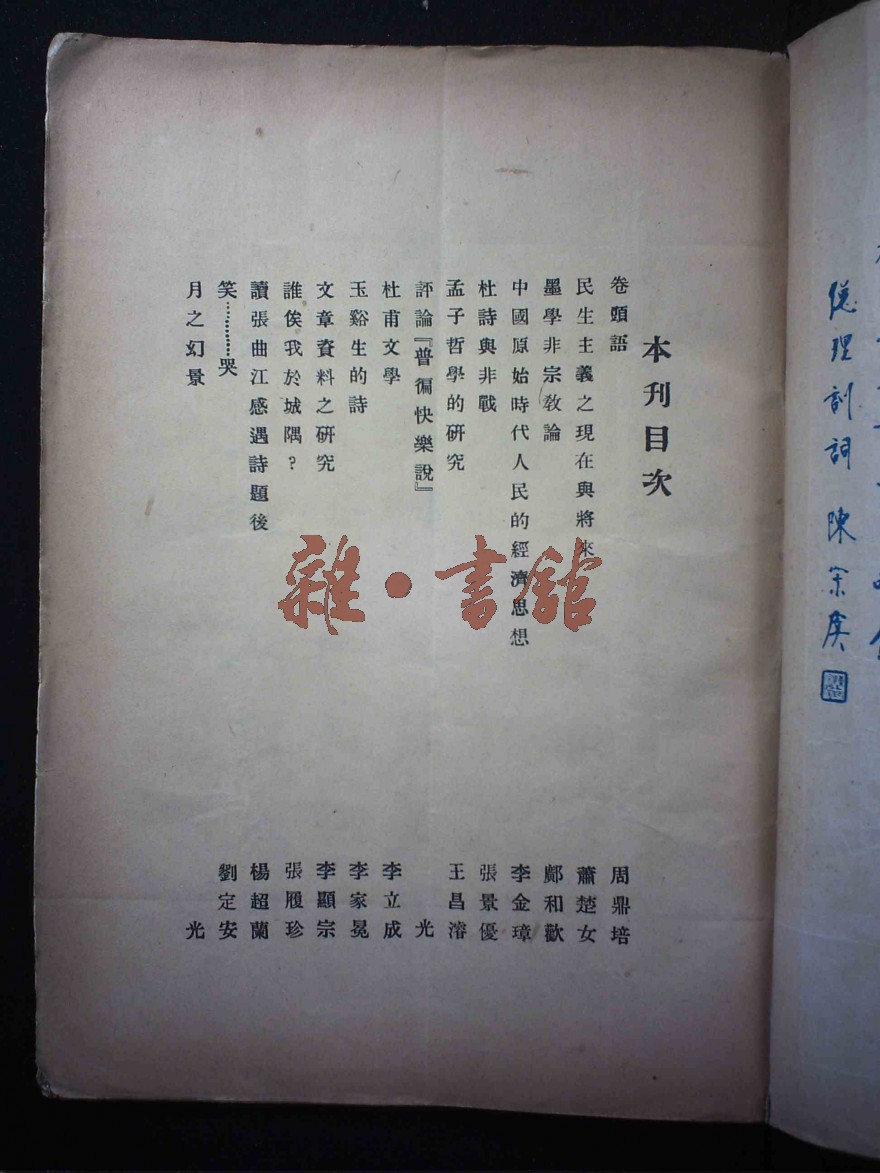 本刊目次
卷頭語 周鼎培
民生主義之現在與將來 蕭楚女
墨學非宗教論 鄺和歡
中國原始時代人民的經濟思想 李金璋
杜詩與非戰 張景優
孟子哲學的研究 王昌濬
評論『普徧快樂說』 光
杜甫文學 李立成
玉谿生的詩 李家冕
文章資料之研究 李顯宗
誰俟我於城隅? 張履珍
讀張曲江感遇詩題後 楊超蘭
笑…………哭 劉定安
月之幻景 光
雜·書館
陳宗虞